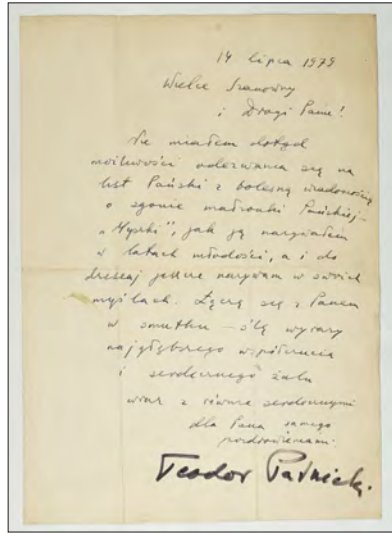 14 lipca 1979
Wielce Szanowny
i Drogi Panie!
Nie miałem dotąd
możliwości odezwania się na
list Pański z bolesną wiadomością
o zgonie małżonki Pańskiej –
„Myszki”, jak ją nazywałem
w latach młodości, a i do
dzisiaj jeszcze nazywam w swoich
myślach. Łączę się z Panem
w smutku – ślę wyrazy
najgłębszego współczucia
i serdecznego żalu
wraz z równie serdecznymi
dla Pana samego
pozdrowieniami.
Teodor Parnicki.